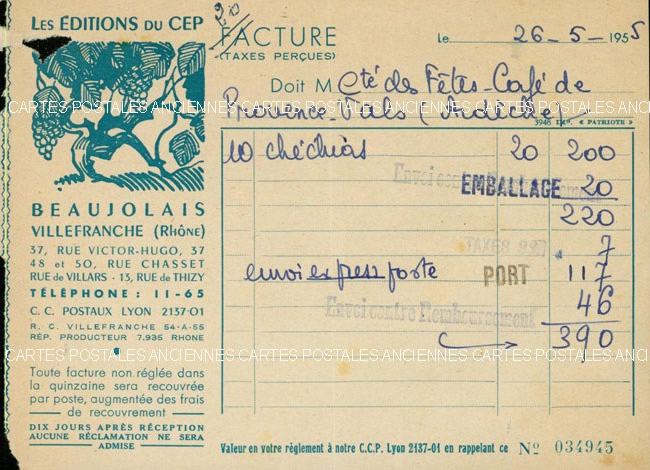 LES ÉDITIONS DU CEP
BEAUJOLAIS
VILLEFRANCHE (RHÔNE)
37, RUE VICTOR-HUGO, 37
48 et 50, RUE CHASSET
RUE DE VILLARS - 13, RUE DE THIZY
TÉLÉPHONE : 11-65
C. C. POSTAUX LYON 2137-01
R. C. VILLEFRANCHE 54-A-55
RÉP. PRODUCTEUR 7.935 RHONE
Toute facture non réglée dans
la quinzaine sera recouvrée
par poste, augmentée des frais
de recouvrement
DIX JOURS APRÈS RÉCEPTION
AUCUNE RÉCLAMATION NE SERA
ADMISE
20
FACTURE
(TAXES PERÇUES)
Le 26-5-1955
Doit M Cté des Fêtes-Café de
Provence-Vals (Ardèche)
3948 IMP. « PATRIOTE »
CARTES POSTALES ANCIENNES CARTES POSTALES ANCIENNES CARTES POSTALES ANCIENNES
10 chéchias 20 200
Envoi contre Remboursement
EMBALLAGE 20
220
TAXES 7
envoi express poste PORT 117
46
Envoi contre Remboursement
390
CARTES POSTALES ANCIENNES CARTES POSTALES ANCIENNES CARTES POSTALES ANCIENNES
Valeur en votre règlement à notre C.C.P. Lyon 2137-01 en rappelant ce Nº 034945